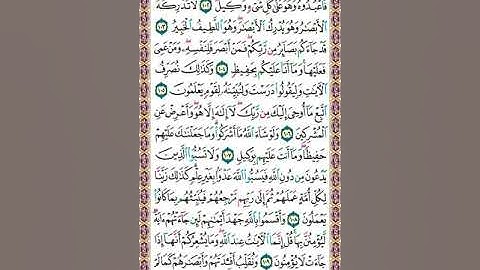 فَاعْبُدُوهُ وَهُوَ عَلَىٰ كُلِّ شَيْءٍ وَكِيلٌ ١٠٢ لَا تُدْرِكُهُ
الْأَبْصَارُ وَهُوَ يُدْرِكُ الْأَبْصَارَ وَهُوَ اللَّطِيفُ الْخَبِيرُ ١٠٣
قَدْ جَاءَكُم بَصَائِرُ مِن رَّبِّكُمْ فَمَنْ أَبْصَرَ فَلِنَفْسِهِ وَمَنْ عَمِيَ
فَعَلَيْهَا وَمَا أَنَا عَلَيْكُم بِحَفِيظٍ ١٠٤ وَكَذَٰلِكَ نُصَرِّفُ
الْآيَاتِ وَلِيَقُولُوا دَرَسْتَ وَلِنُبَيِّنَهُ لِقَوْمٍ يَعْلَمُونَ ١٠٥
اتَّبِعْ مَا أُوحِيَ إِلَيْكَ مِن رَّبِّكَ لَا إِلَٰهَ إِلَّا هُوَ وَأَعْرِضْ عَنِ
الْمُشْرِكِينَ ١٠٦ وَلَوْ شَاءَ اللَّهُ مَا أَشْرَكُوا وَمَا جَعَلْنَاكَ عَلَيْهِمْ
حَفِيظًا وَمَا أَنتَ عَلَيْهِم بِوَكِيلٍ ١٠٧ وَلَا تَسُبُّوا الَّذِينَ
يَدْعُونَ مِن دُونِ اللَّهِ فَيَسُبُّوا اللَّهَ عَدْوًا بِغَيْرِ عِلْمٍ كَذَٰلِكَ زَيَّنَّا
لِكُلِّ أُمَّةٍ عَمَلَهُمْ ثُمَّ إِلَىٰ رَبِّهِم مَّرْجِعُهُمْ فَيُنَبِّئُهُم بِمَا كَانُوا
يَعْمَلُونَ ١٠٨ وَأَقْسَمُوا بِاللَّهِ جَهْدَ أَيْمَانِهِمْ لَئِن جَاءَتْهُمْ آيَةٌ
لَّيُؤْمِنُنَّ بِهَا قُلْ إِنَّمَا الْآيَاتُ عِندَ اللَّهِ وَمَا يُشْعِرُكُمْ أَنَّهَا إِذَا
جَاءَتْ لَا يُؤْمِنُونَ ١٠٩ وَنُقَلِّبُ أَفْئِدَتَهُمْ وَأَبْصَارَهُمْ كَمَا لَمْ